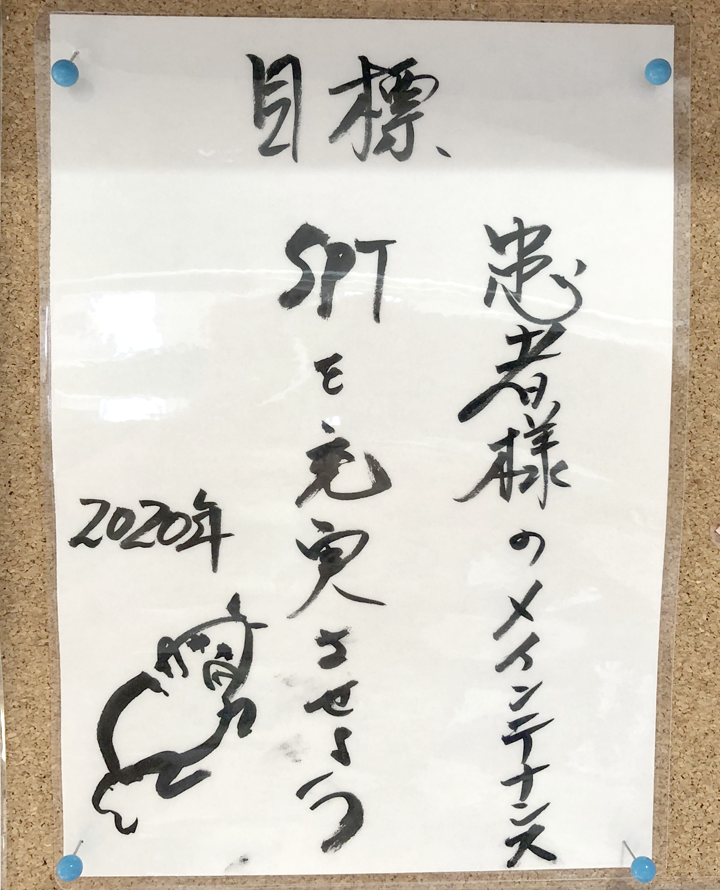 目標、
患者様のメインテナンス
SPTを充実させよう
2020年